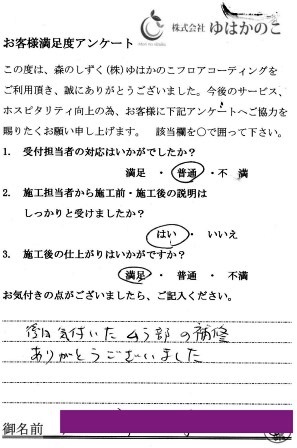 株式会社 ゆはかのこ
お客様満足度アンケート
この度は、森のしずく(株)ゆはかのこフロアコーティングを
ご利用頂き、誠にありがとうございました。今後のサービス、
ホスピタリティ向上の為、お客様に下記アンケートへご協力を
賜りたくお願い申し上げます。 該当欄を○で囲って下さい。
1. 受付担当者の対応はいかがでしたか?
満足 ・ 普通 ・ 不 満
2. 施工担当者から施工前・施工後の説明は
しっかりと受けましたか?
はい ・ いいえ
3. 施工後の仕上がりはいかがですか?
満足 ・ 普通 ・ 不満
お気付きの点がございましたら、ご記入ください。
気付いた ムラ部 の補修
ありがとうございました
御名前